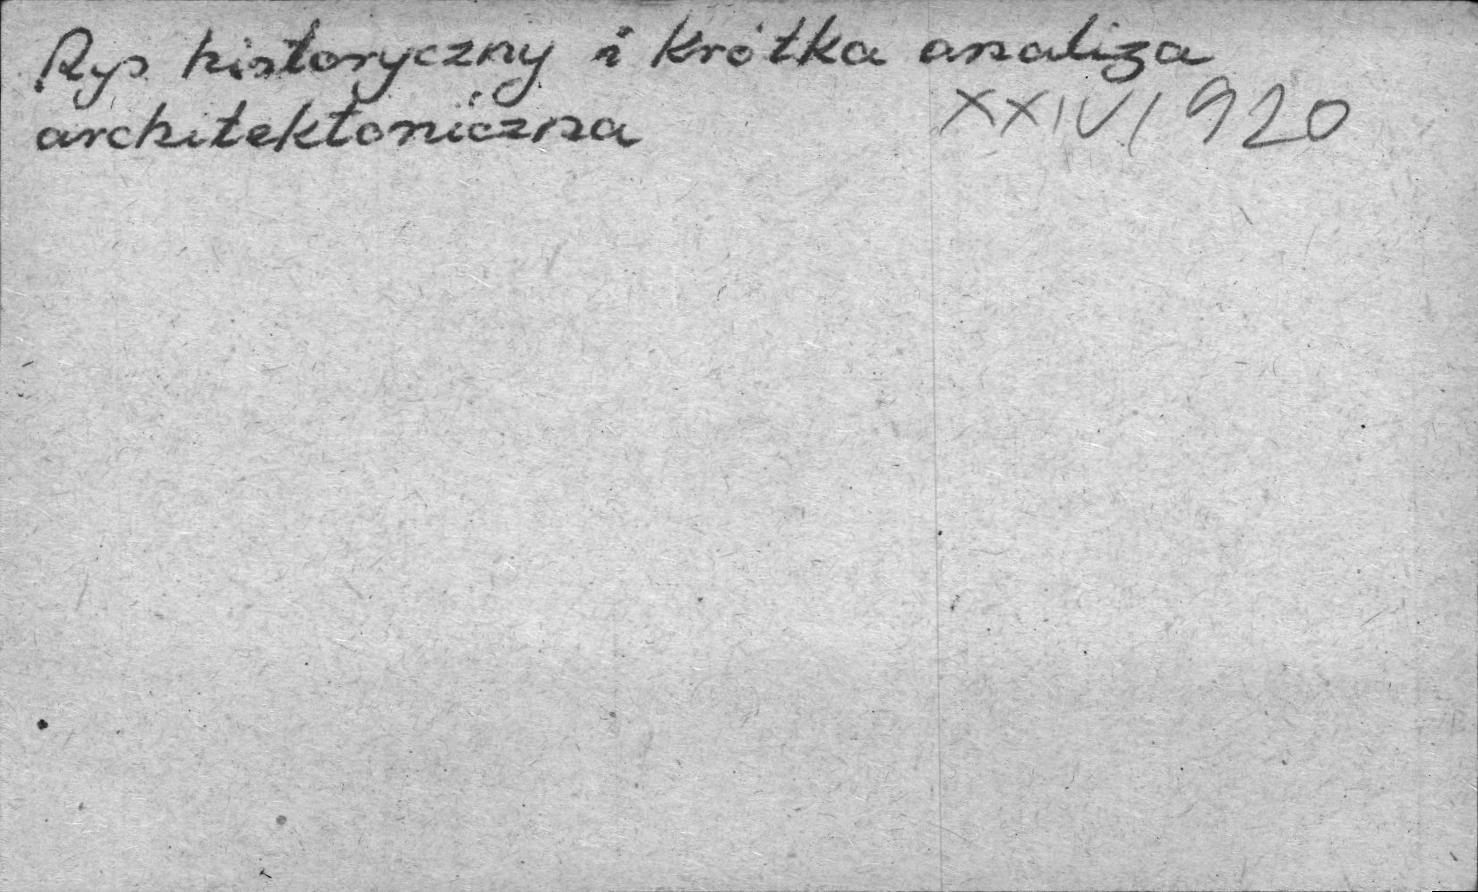 Rys historyczny i krótka analiza
architektoniczna
XXIV/920